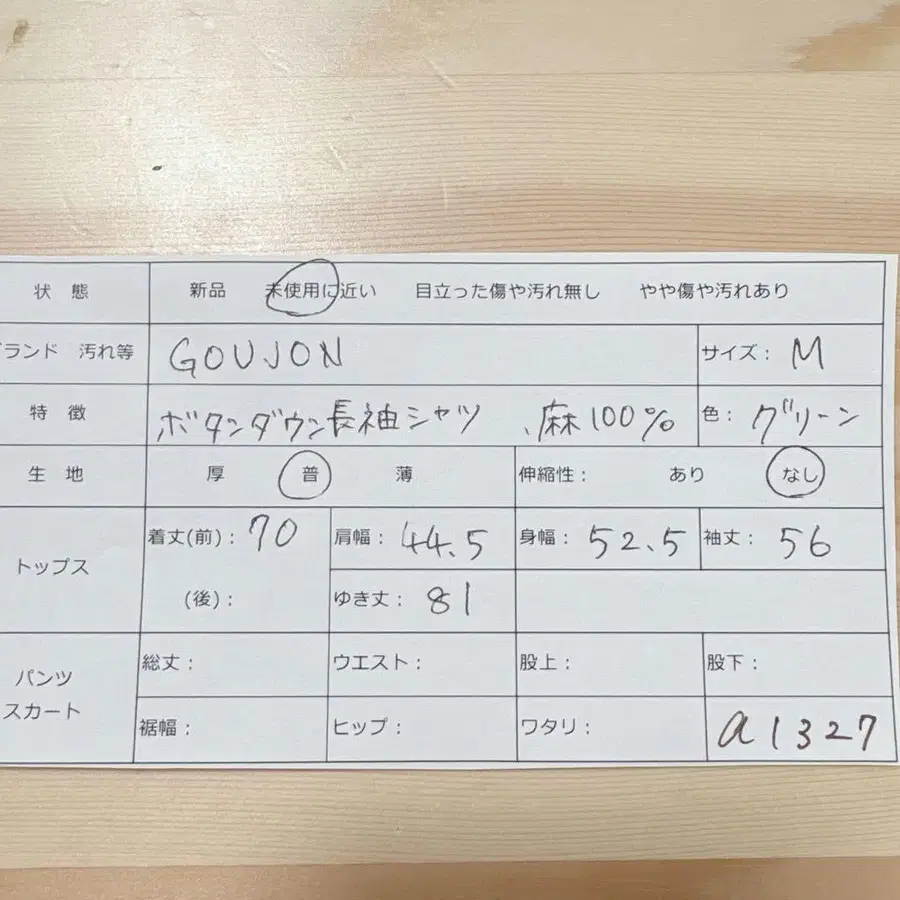 状 態 新品 未使用に近い 目立った傷や汚れ無し やや傷や汚れあり
ランド 汚れ等 GOUJON サイズ: M
特 徴 ボタンダウン長袖シャツ 、麻100% 色: グリーン
生 地 厚 普 薄 伸縮性: あり なし
トップス 着丈(前): 70 肩幅: 44.5 身幅: 52.5 袖丈: 56
(後): ゆき丈: 81
パンツ 総丈: ウエスト: 股上: 股下:
スカート 裾幅: ヒップ: ワタリ: a1327